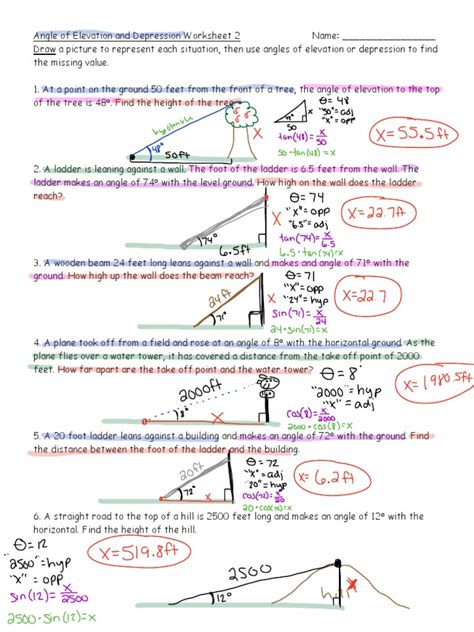 Angle of Elevation and Depression Worksheet 2 Name: ________________
Draw a picture to represent each situation, then use angles of elevation or depression to find
the missing value.
1. At a point on the ground 50 feet from the front of a tree, the angle of elevation to the top
of the tree is 48°. Find the height of the tree.
hypotenuse
48°
50ft
x
x
48
50
θ = 48
"50" = adj
"x" = opp
tan(48) = x/50
50·tan(48) = x
x=55.5ft
2. A ladder is leaning against a wall. The foot of the ladder is 6.5 feet from the wall. The
ladder makes an angle of 74° with the level ground. How high on the wall does the ladder
reach?
74°
6.5ft
x
θ = 74
"x" = opp
"6.5" = adj
tan(74) = x/6.5
6.5·tan(74) = x
x=22.7ft
3. A wooden beam 24 feet long leans against a wall and makes an angle of 71° with the
ground. How high up the wall does the beam reach?
24ft
71°
x
θ = 71
"x" = opp
"24" = hyp
sin(71) = x/24
24·sin(71) = x
x=22.7
4. A plane took off from a field and rose at an angle of 8° with the horizontal ground. As the
plane flies over a water tower, it has covered a distance from the take off point of 2000
feet. How far apart are the take off point and the water tower?
2000ft
8°
x
θ = 8°
"2000" = hyp
"x" = adj
cos(8) = x/2000
2000·cos(8) = x
x=1980.5ft
5. A 20 foot ladder leans against a building and makes an angle of 72° with the ground. Find
the distance between the foot of the ladder and the building.
20ft
72°
x
θ = 72
"x" = adj
"20" = hyp
cos(72) = x/20
20·cos(72) = x
x=6.2ft
6. A straight road to the top of a hill is 2500 feet long and makes an angle of 12° with the
horizontal. Find the height of the hill.
θ = 12
"2500" = hyp
"x" = opp
sin(12) = x/2500
2500·sin(12) = x
x=519.8ft
2500
12°
x